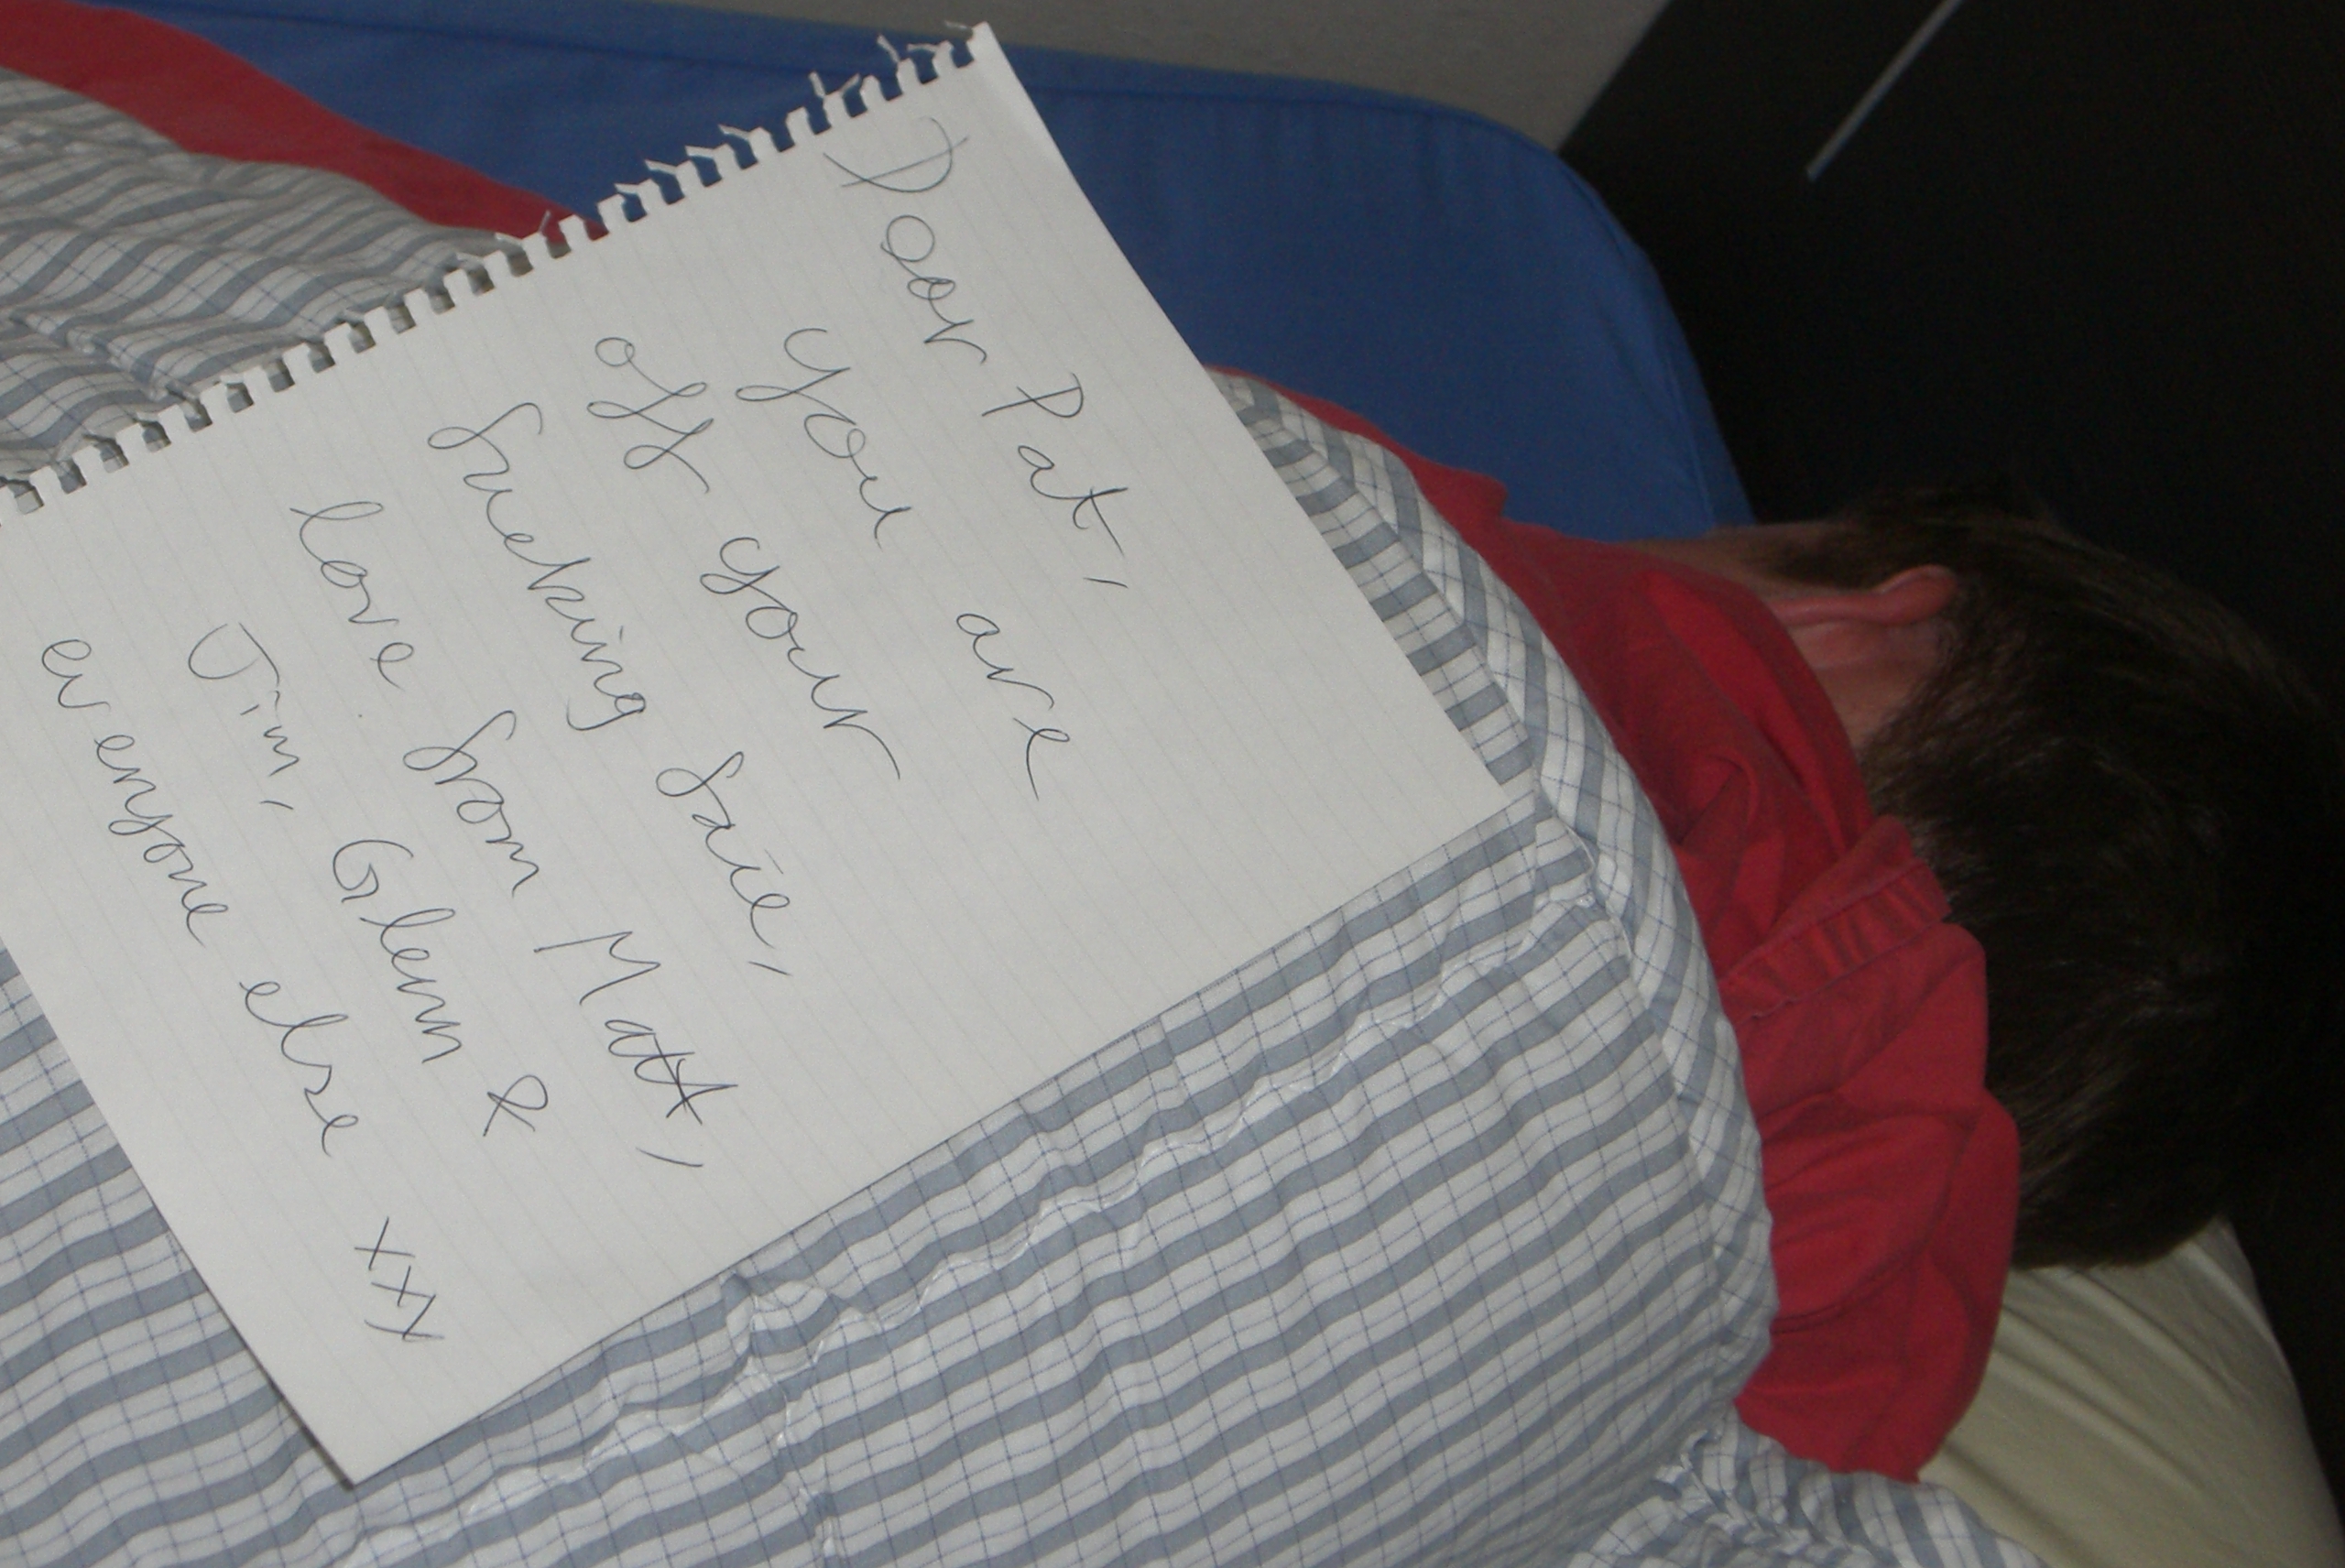 Poor Pat,
you are
off your
fucking face,
love from Matt,
Jim, Glenn &
everyone else xxx